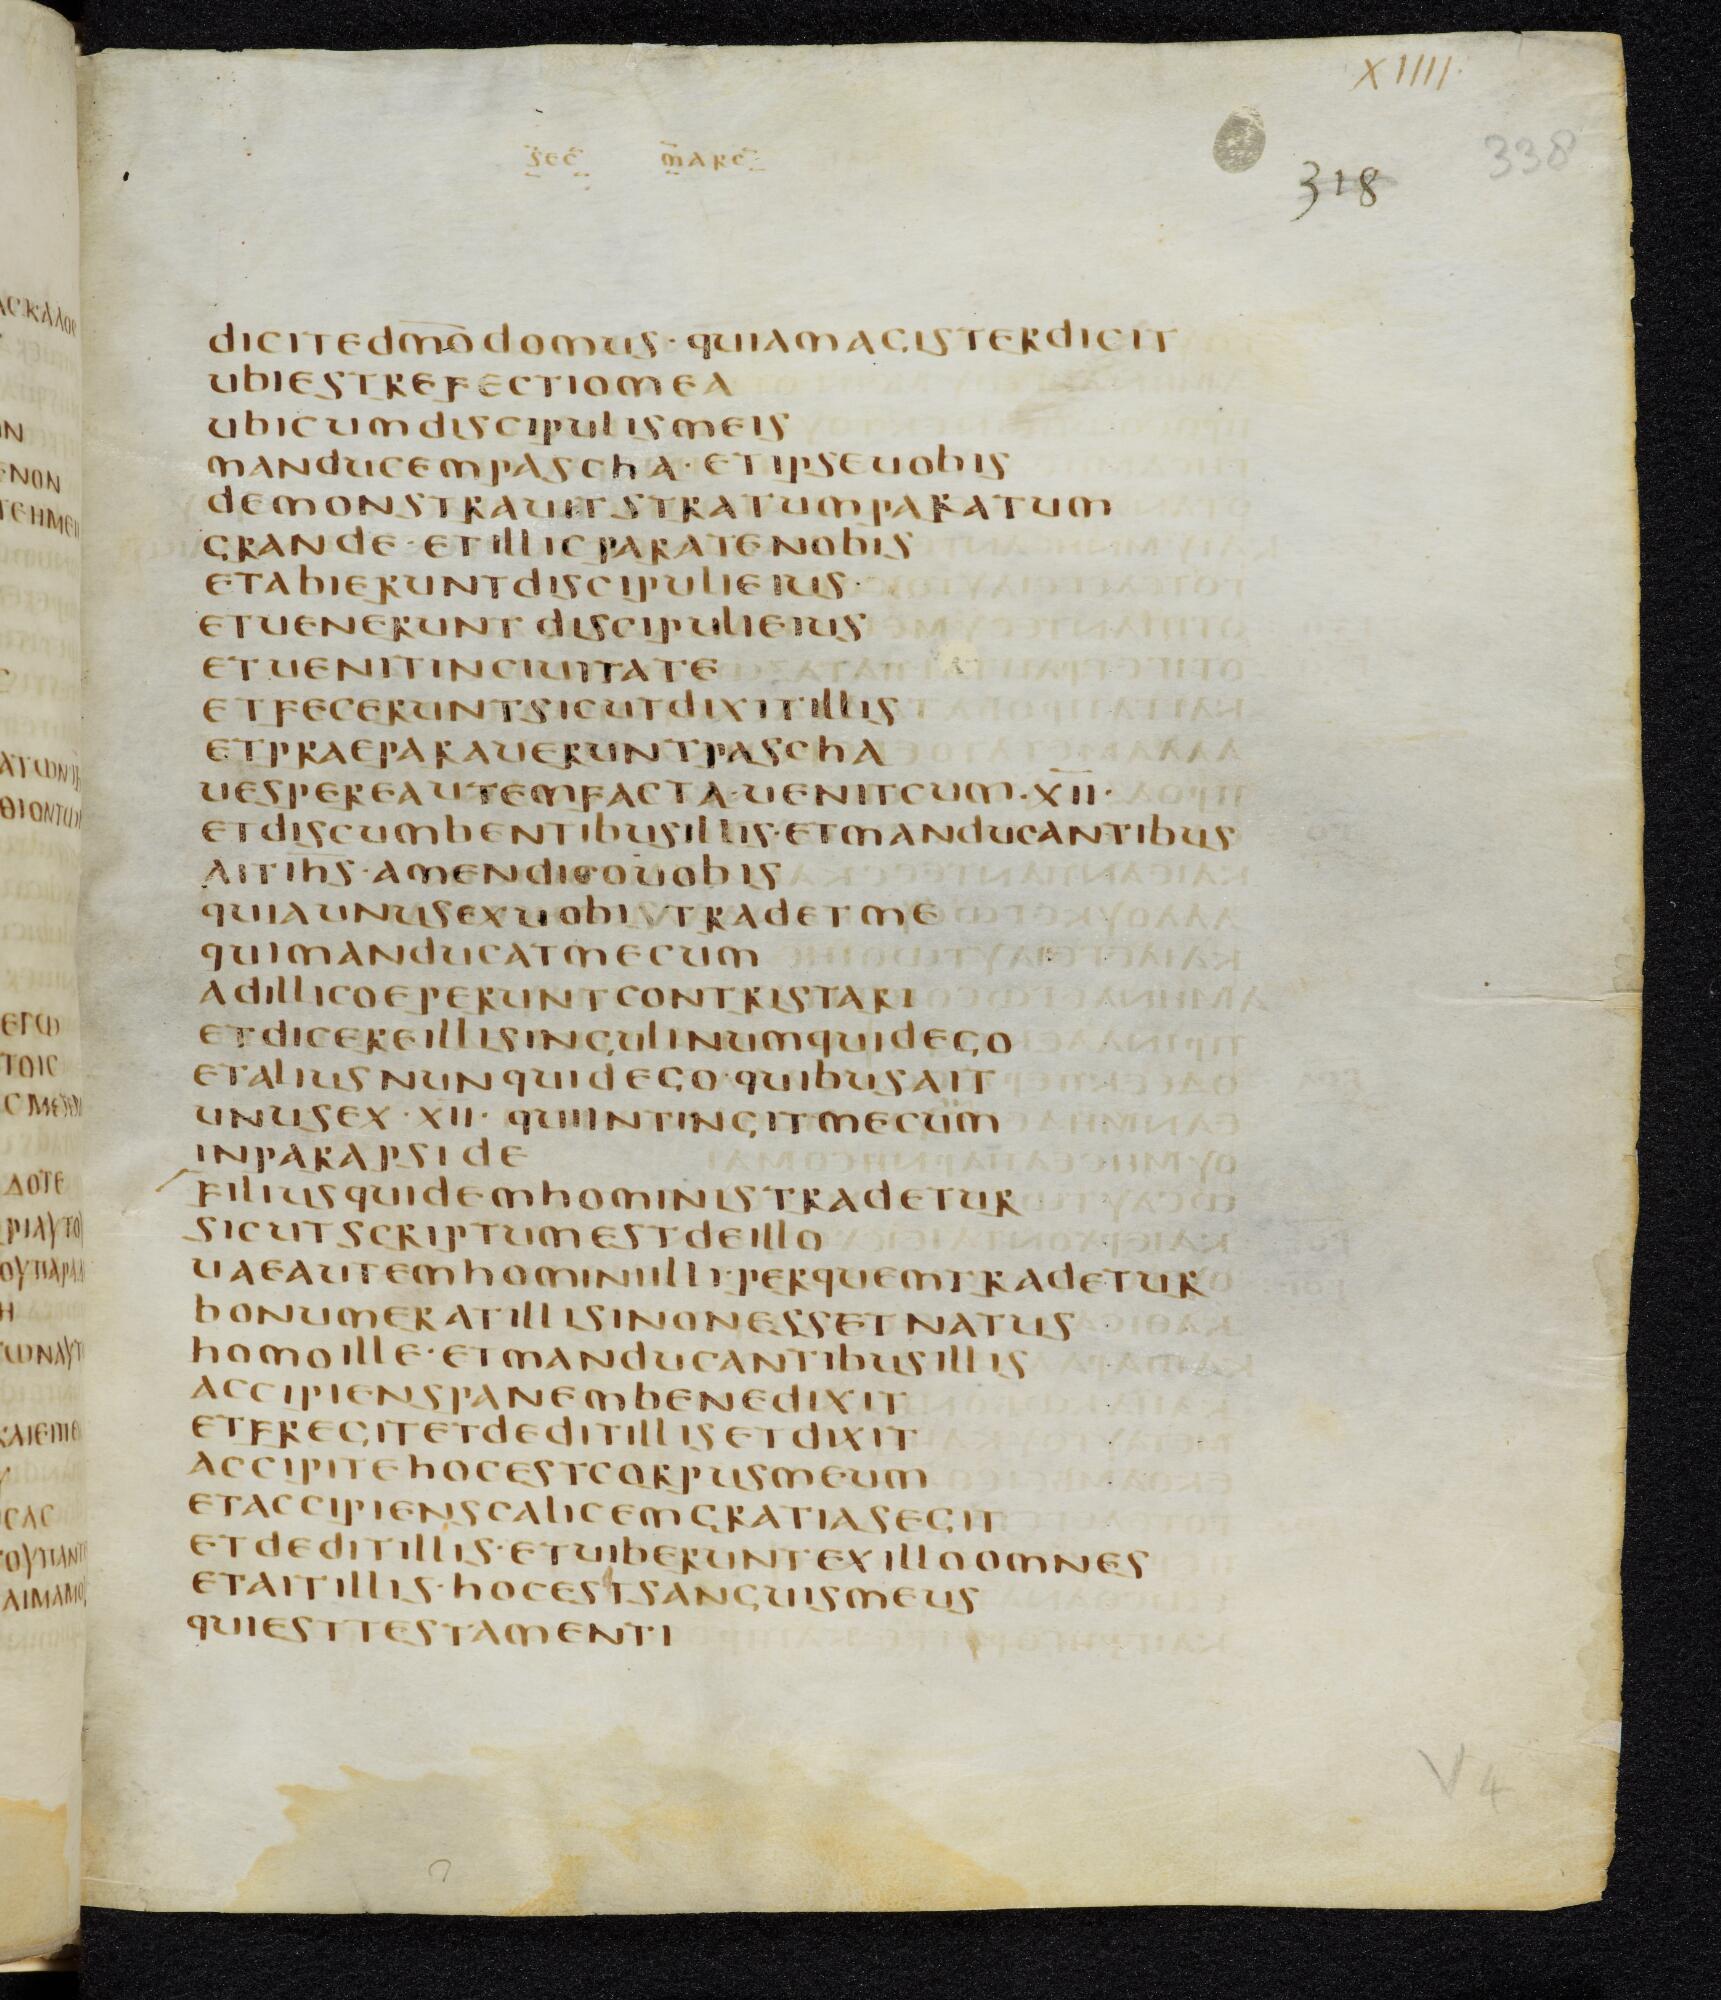 XIIII·
sec marc
338
318
dicitedm̅o̅domus·quiamagisterdicit
ubiestrefectiomea
ubicumdiscipulismeis
manducempascha·etipseuobis
demonstrauitstratumparatum
grande·etillicparatenobis
etabieruntdiscipulieius·
etuenerunt discipulieius
etuenitinciuitate
etfeceruntsicutdixitillis
etpraeparaueruntpascha
uespereautemfacta·uenitcum·x̅i̅i̅·
etdiscumbentibusillis·etmanducantibus
aitih̅s̅·amendicouobis
quiaunusexuobistradetme
quimanducatmecum
adillicoeperuntcontristari
etdicereillisingulinumquidego
etaliusnunquidego·quibusait
unusex·xii·quiintingitmecum
inparapside
filiusquidemhoministradetur
sicutscriptumestdeillo
uaeautemhominiilli·perquemtradetur
bonumeratillisinonessetnatus
homoille·etmanducantibusillis
accipienspanembenedixit
etfregitetdeditillisetdixit
accipitehocestcorpusmeum
etaccipienscalicemgratiasegit
etdeditillis·etuiberuntexilloomnes
etaitillis·hocestsanguismeus
quiesttestamenti
V 4